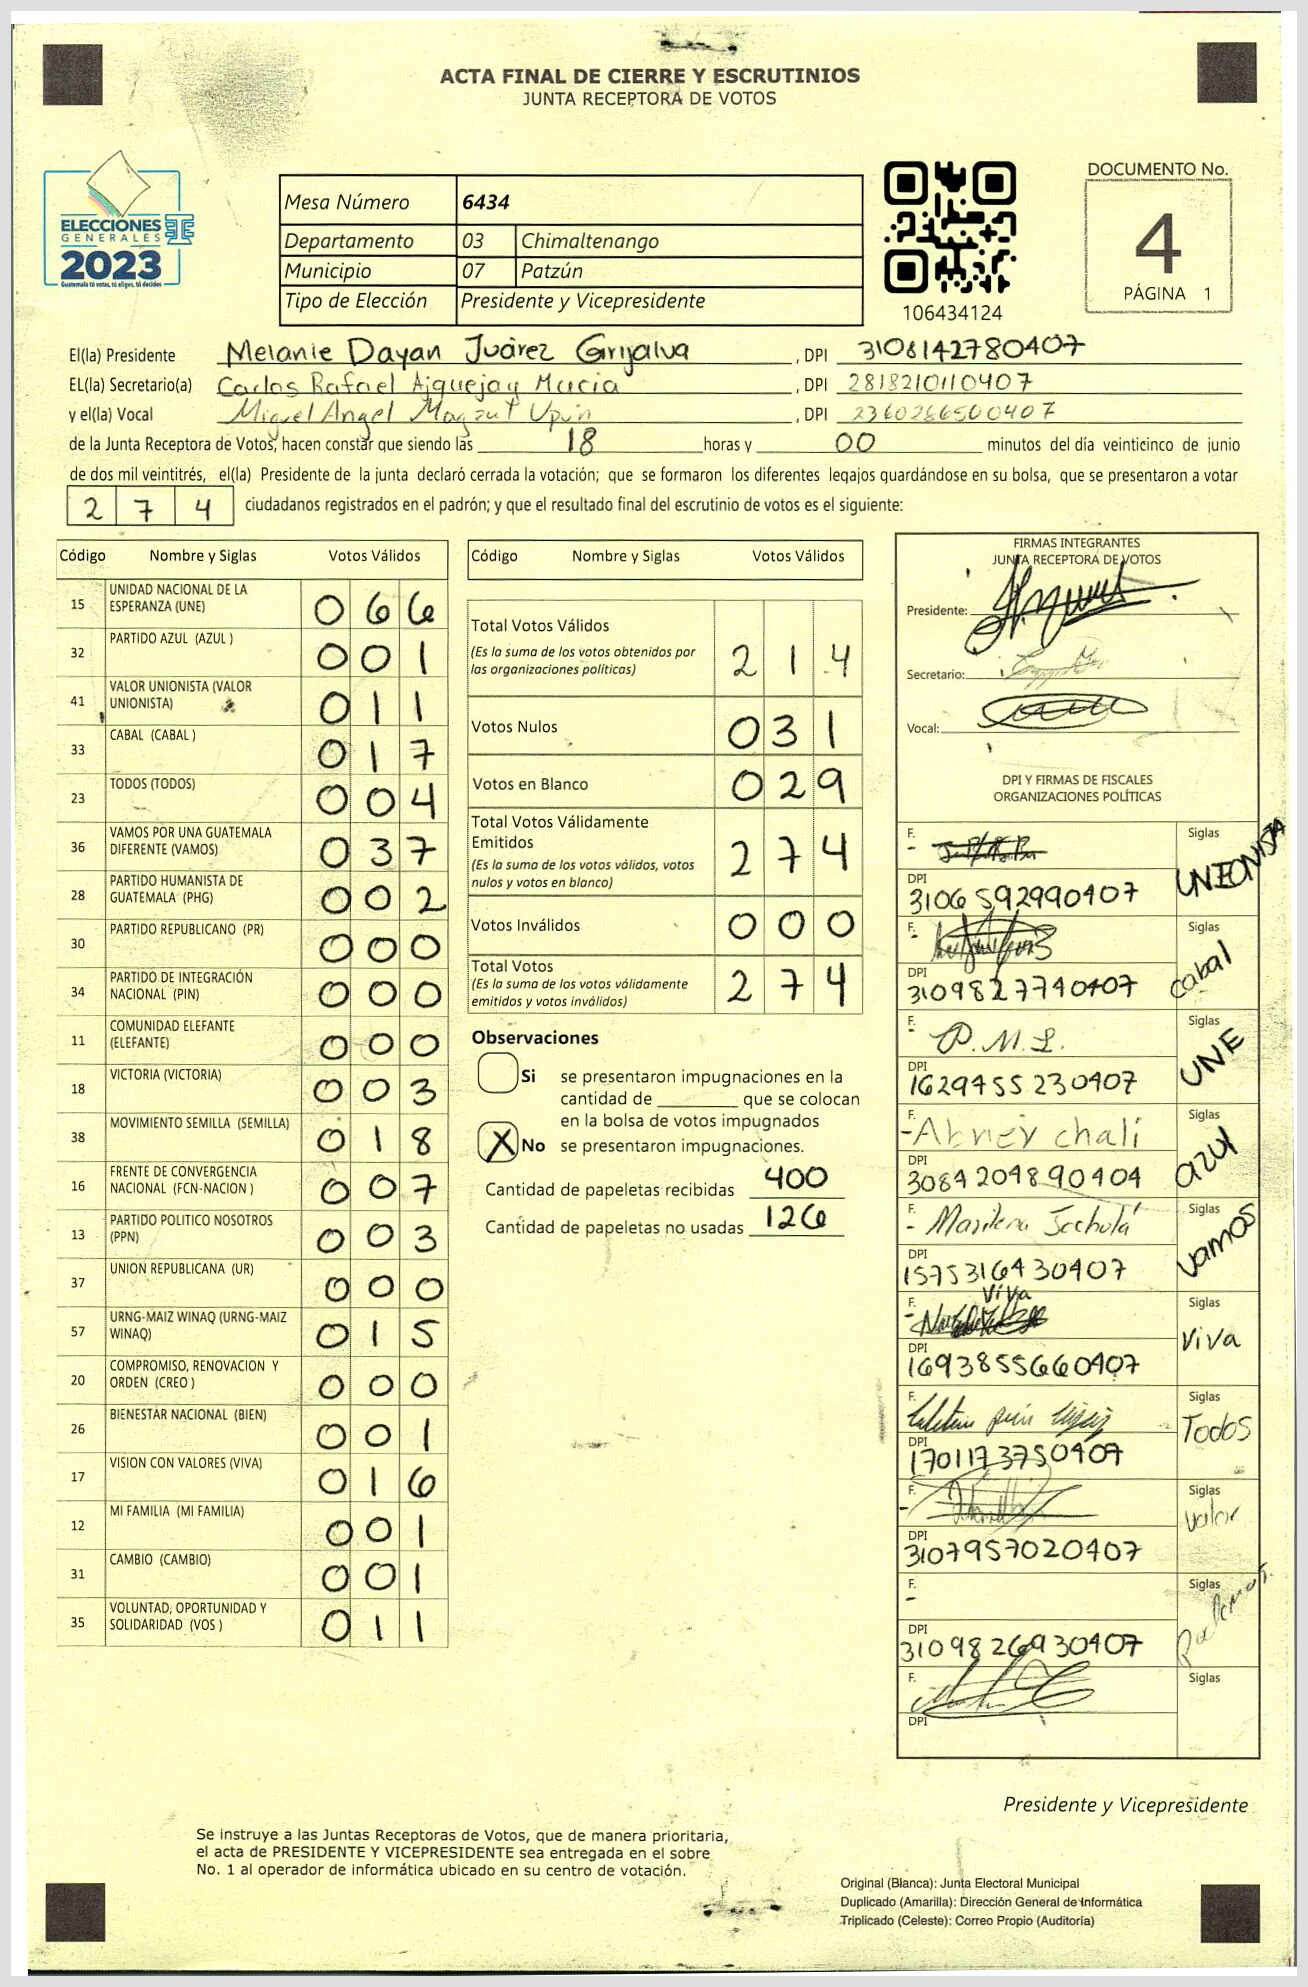 ACTA FINAL DE CIERRE Y ESCRUTINIOS
JUNTA RECEPTORA DE VOTOS
ELECCIONES
GENERALES
2023
Guatemala tú votas, tú eliges, tú decides
Mesa Número 6434
Departamento 03 Chimaltenango
Municipio 07 Patzún
Tipo de Elección Presidente y Vicepresidente
106434124
DOCUMENTO No.
4
PÁGINA 1
El(la) Presidente Melanie Dayan Juárez Grijalva , DPI 3108142780407
EL(la) Secretario(a) Carlos Rafael Ajquejay Murcia , DPI 2818210110407
y el(la) Vocal Miguel Angel , DPI 2360286500407
de la Junta Receptora de Votos, hacen constar que siendo las 18 horas y 00 minutos del día veinticinco de junio
de dos mil veintitrés, el(la) Presidente de la junta declaró cerrada la votación; que se formaron los diferentes legajos quardándose en su bolsa, que se presentaron a votar
274 ciudadanos registrados en el padrón; y que el resultado final del escrutinio de votos es el siguiente:
Código Nombre y Siglas Votos Válidos
15 UNIDAD NACIONAL DE LA
ESPERANZA (UNE) 066
32 PARTIDO AZUL (AZUL ) 001
41 VALOR UNIONISTA (VALOR
UNIONISTA) 011
33 CABAL (CABAL ) 017
23 TODOS (TODOS) 004
36 VAMOS POR UNA GUATEMALA
DIFERENTE (VAMOS) 037
28 PARTIDO HUMANISTA DE
GUATEMALA (PHG) 002
30 PARTIDO REPUBLICANO (PR) 000
34 PARTIDO DE INTEGRACIÓN
NACIONAL (PIN) 000
11 COMUNIDAD ELEFANTE
(ELEFANTE) 000
18 VICTORIA (VICTORIA) 003
38 MOVIMIENTO SEMILLA (SEMILLA) 018
16 FRENTE DE CONVERGENCIA
NACIONAL (FCN-NACION ) 007
13 PARTIDO POLITICO NOSOTROS
(PPN) 003
37 UNION REPUBLICANA (UR) 000
57 URNG-MAIZ WINAQ (URNG-MAIZ
WINAQ) 015
20 COMPROMISO, RENOVACION Y
ORDEN (CREO ) 000
26 BIENESTAR NACIONAL (BIEN) 001
17 VISION CON VALORES (VIVA) 016
12 MI FAMILIA (MI FAMILIA) 001
31 CAMBIO (CAMBIO) 001
35 VOLUNTAD, OPORTUNIDAD Y
SOLIDARIDAD (VOS ) 011
Código Nombre y Siglas Votos Válidos
Total Votos Válidos
(Es la suma de los votos obtenidos por
las organizaciones políticas) 214
Votos Nulos 031
Votos en Blanco 029
Total Votos Válidamente
Emitidos
(Es la suma de los votos válidos, votos
nulos y votos en blanco) 274
Votos Inválidos 000
Total Votos
(Es la suma de los votos válidamente
emitidos y votos inválidos) 274
Observaciones
Si se presentaron impugnaciones en la
cantidad de ________ que se colocan
en la bolsa de votos impugnados
X No se presentaron impugnaciones.
Cantidad de papeletas recibidas 400
Cantidad de papeletas no usadas 126
FIRMAS INTEGRANTES
JUNTA RECEPTORA DE VOTOS
Presidente:
Secretario:
Vocal:
DPI Y FIRMAS DE FISCALES
ORGANIZACIONES POLÍTICAS
F. Siglas UNIONISTA
DPI
3106592990407
F. Siglas cabal
DPI
3109827740407
F. P.M.L. Siglas UNE
DPI
1629455230407
F. Abney chali Siglas azul
DPI
3084204890404
F. Siglas vamos
DPI
1575316430407
F. Viva Siglas Viva
DPI
1693855660407
F. Siglas Todos
DPI
1701173750407
F. Siglas valor
DPI
3107957020407
F. Siglas
DPI
3109826930407
F. Siglas
DPI
Presidente y Vicepresidente
Se instruye a las Juntas Receptoras de Votos, que de manera prioritaria,
el acta de PRESIDENTE Y VICEPRESIDENTE sea entregada en el sobre
No. 1 al operador de informática ubicado en su centro de votación.
Original (Blanca): Junta Electoral Municipal
Duplicado (Amarilla): Dirección General de Informática
Triplicado (Celeste): Correo Propio (Auditoría)